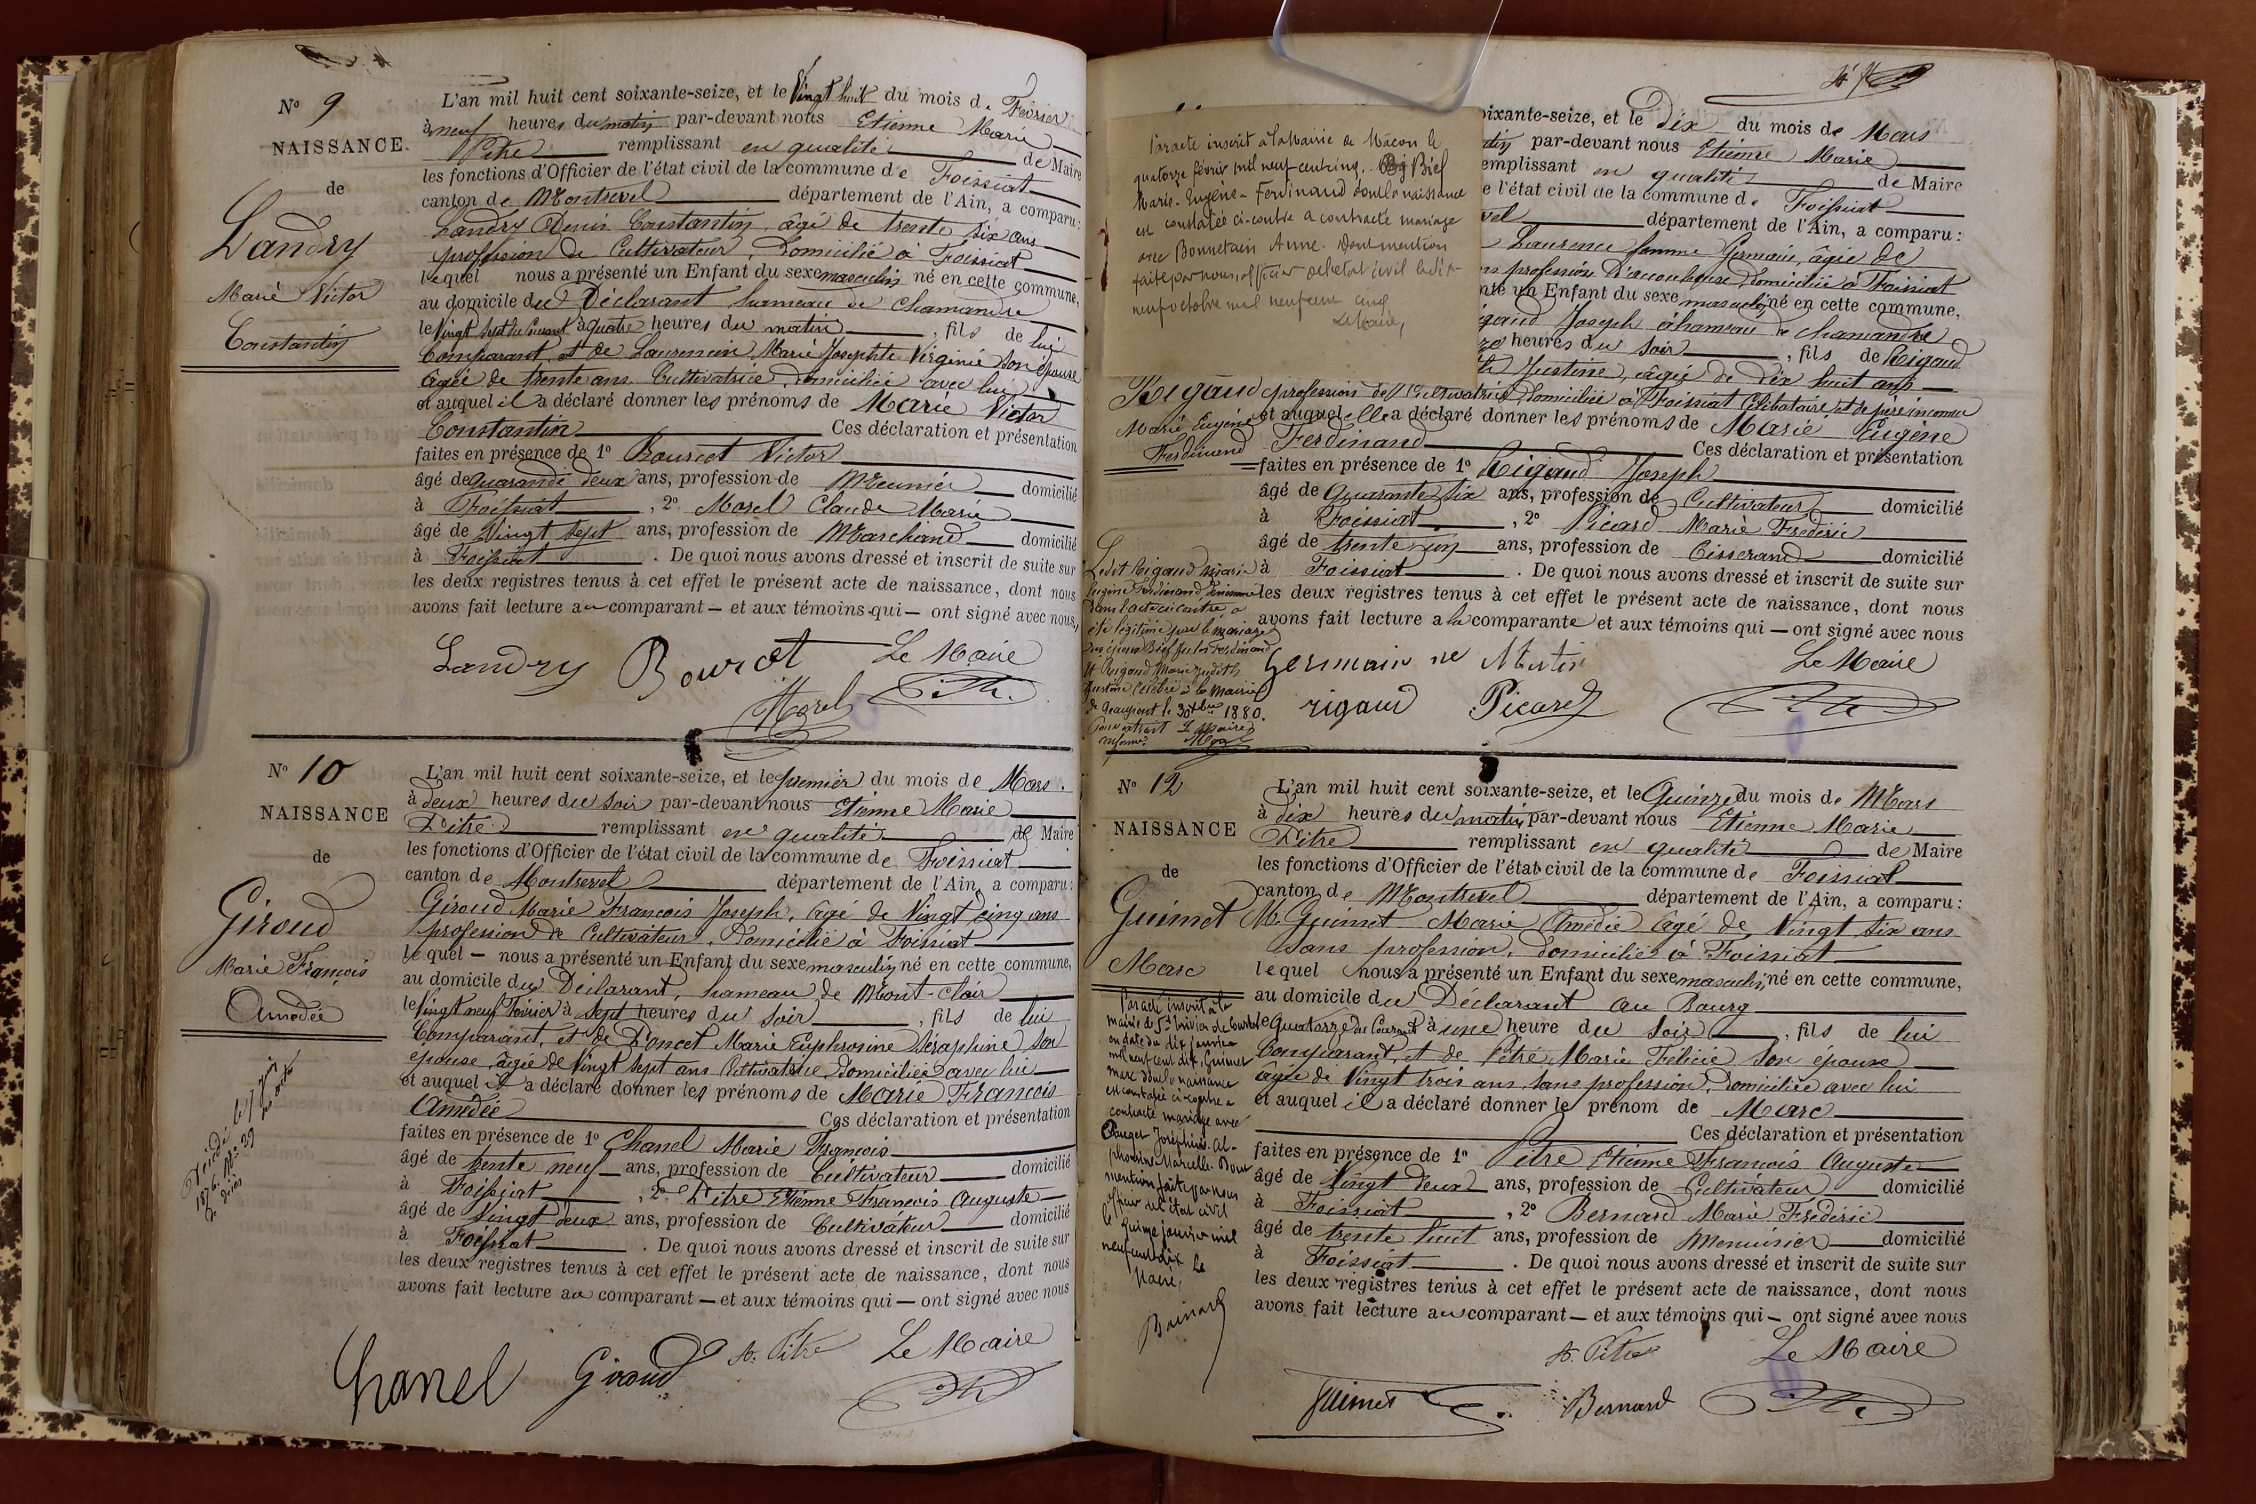 N° 9
NAISSANCE
de
Landry
Marie Victor
Constantin
L'an mil huit cent soixante-seize, et le Vingt huit du mois de Février
à neuf heures du matin par-devant nous Etienne Marie
Pitre remplissant en qualité de Maire
les fonctions d'Officier de l'état civil de la commune de Foissiat
canton de Montrevel département de l'Ain, a comparu:
Landry Denis Constantin âgé de trente six ans
profession de Cultivateur, Domicilié à Foissiat
lequel nous a présenté un Enfant du sexe masculin né en cette commune,
au domicile du Déclarant hameau de Chamandre
le Vingt sept du Courant à quatre heures du matin, fils de lui
Comparant, et de Laurencin Marie Josephte Virginie son épouse
âgée de trente ans Cultivatrice domiciliée avec lui
et auquel il a déclaré donner les prénoms de Marie Victor
Constantin Ces déclaration et présentation
faites en présence de 1° Bourcet Victor
âgé de quarante deux ans, profession de Meunier domicilié
à Foissiat, 2° Morel Claude Marie
âgé de Vingt sept ans, profession de Marchand domicilié
à Foissiat. De quoi nous avons dressé et inscrit de suite sur
les deux registres tenus à cet effet le présent acte de naissance, dont nous
avons fait lecture au comparant — et aux témoins qui — ont signé avec nous,
Landry Bourcet Le Maire
Morel
N° 10
NAISSANCE
de
Giroud
Marie François
Amédée
Décédé le 7 juin
1876. N° 29
L'an mil huit cent soixante-seize, et le premier du mois de Mars
à deux heures du soir par-devant nous Etienne Marie
Pitre remplissant en qualité de Maire
les fonctions d'Officier de l'état civil de la commune de Foissiat
canton de Montrevel département de l'Ain, a comparu:
Giroud Marie François Joseph, âgé de Vingt cinq ans
profession de Cultivateur, Domicilié à Foissiat
lequel — nous a présenté un Enfant du sexe masculin né en cette commune,
au domicile du Déclarant, hameau de Mont-Clair
le Vingt neuf Février à sept heures du soir, fils de lui
Comparant, et de Poncet Marie Euphrosine Séraphine son
épouse, âgée de Vingt sept ans Cultivatrice, domiciliée avec lui
et auquel il a déclaré donner les prénoms de Marie François
Amédée Ces déclaration et présentation
faites en présence de 1° Chanel Marie François
âgé de trente neuf ans, profession de Cultivateur domicilié
à Foissiat, 2° Pitre Etienne François Auguste
âgé de Vingt deux ans, profession de Cultivateur domicilié
à Foissiat. De quoi nous avons dressé et inscrit de suite sur
les deux registres tenus à cet effet le présent acte de naissance, dont nous
avons fait lecture au comparant — et aux témoins qui — ont signé avec nous
Chanel Giroud A. Pitre Le Maire
Par acte inscrit à la Mairie de Mâcon le
quatorze février mil neuf cent cinq. Bief
Marie-Eugène-Ferdinand dont la naissance
est constatée ci-contre a contracté mariage
avec Bonnetain Anne. Dont mention
faite par nous officier de l'état civil le dix-
neuf octobre mil neuf cent cinq
Le Maire,
soixante-seize, et le Dix du mois de Mars
par-devant nous Etienne Marie
remplissant en qualité de Maire
de l'état civil de la commune de Foissiat
département de l'Ain, a comparu:
Laurence femme Germain, âgée de
profession D'accoucheuse domiciliée à Foissiat
un Enfant du sexe masculin né en cette commune,
Joseph hameau de Chamandre
heures du soir, fils de Rigaud
Justine, âgée de Dix huit ans
profession de Cultivatrice, domiciliée à Foissiat Célibataire et de père inconnu
et auquel elle a déclaré donner les prénoms de Marie Eugène
Ferdinand Ces déclaration et présentation
faites en présence de 1° Rigaud Joseph
âgé de Quarante six ans, profession de Cultivateur domicilié
à Foissiat, 2° Picard Marie Frédéric
âgé de trente un ans, profession de Tisserand domicilié
à Foissiat. De quoi nous avons dressé et inscrit de suite sur
les deux registres tenus à cet effet le présent acte de naissance, dont nous
avons fait lecture à la comparante et aux témoins qui — ont signé avec nous
Germain née Martin Le Maire
rigaud Picard
Rigaud
Marie Eugène
Ferdinand
Ledit Rigaud Marie
Eugène Ferdinand, dénommé
dans l'acte ci contre, a
été légitimé par le mariage
des époux Bief Ferdinand
et Rigaud Marie Judith
Justine célébré à la mairie
de Beaupont le 30 1880.
Pour extrait Le Maire
N° 12
NAISSANCE
de
Guimet
Marc
Par acte inscrit à la
mairie de St Trivier de Courtes
en date du dix janvier
mil neuf cent dix, Guimet
Marc dont la naissance
est constatée ci-contre a
contracté mariage avec
Pauget Joséphine Al-
phonsine Marcelle. Dont
mention faite par nous
officier de l'état civil
le quinze janvier mil
neuf cent dix Le
Maire,
L'an mil huit cent soixante-seize, et le Quinze du mois de Mars
à dix heures du matin par-devant nous Etienne Marie
Pitre remplissant en qualité de Maire
les fonctions d'Officier de l'état civil de la commune de Foissiat
canton de Montrevel département de l'Ain, a comparu:
M. Guimet Marie Amédée âgé de Vingt six ans
sans profession, domicilié à Foissiat
lequel nous a présenté un Enfant du sexe masculin né en cette commune,
au domicile du Déclarant au Bourg
le Quatorze du Courant à une heure du soir, fils de lui
Comparant, et de Pitre Marie Félicie son épouse
âgée de Vingt trois ans, sans profession, Domiciliée avec lui
et auquel il a déclaré donner le prénom de Marc
Ces déclaration et présentation
faites en présence de 1° Pitre Etienne François Auguste
âgé de Vingt deux ans, profession de Cultivateur domicilié
à Foissiat, 2° Bernard Marie Frédéric
âgé de trente huit ans, profession de Menuisier domicilié
à Foissiat. De quoi nous avons dressé et inscrit de suite sur
les deux registres tenus à cet effet le présent acte de naissance, dont nous
avons fait lecture au comparant — et aux témoins qui — ont signé avec nous
A. Pitre Le Maire
Guimet Bernard